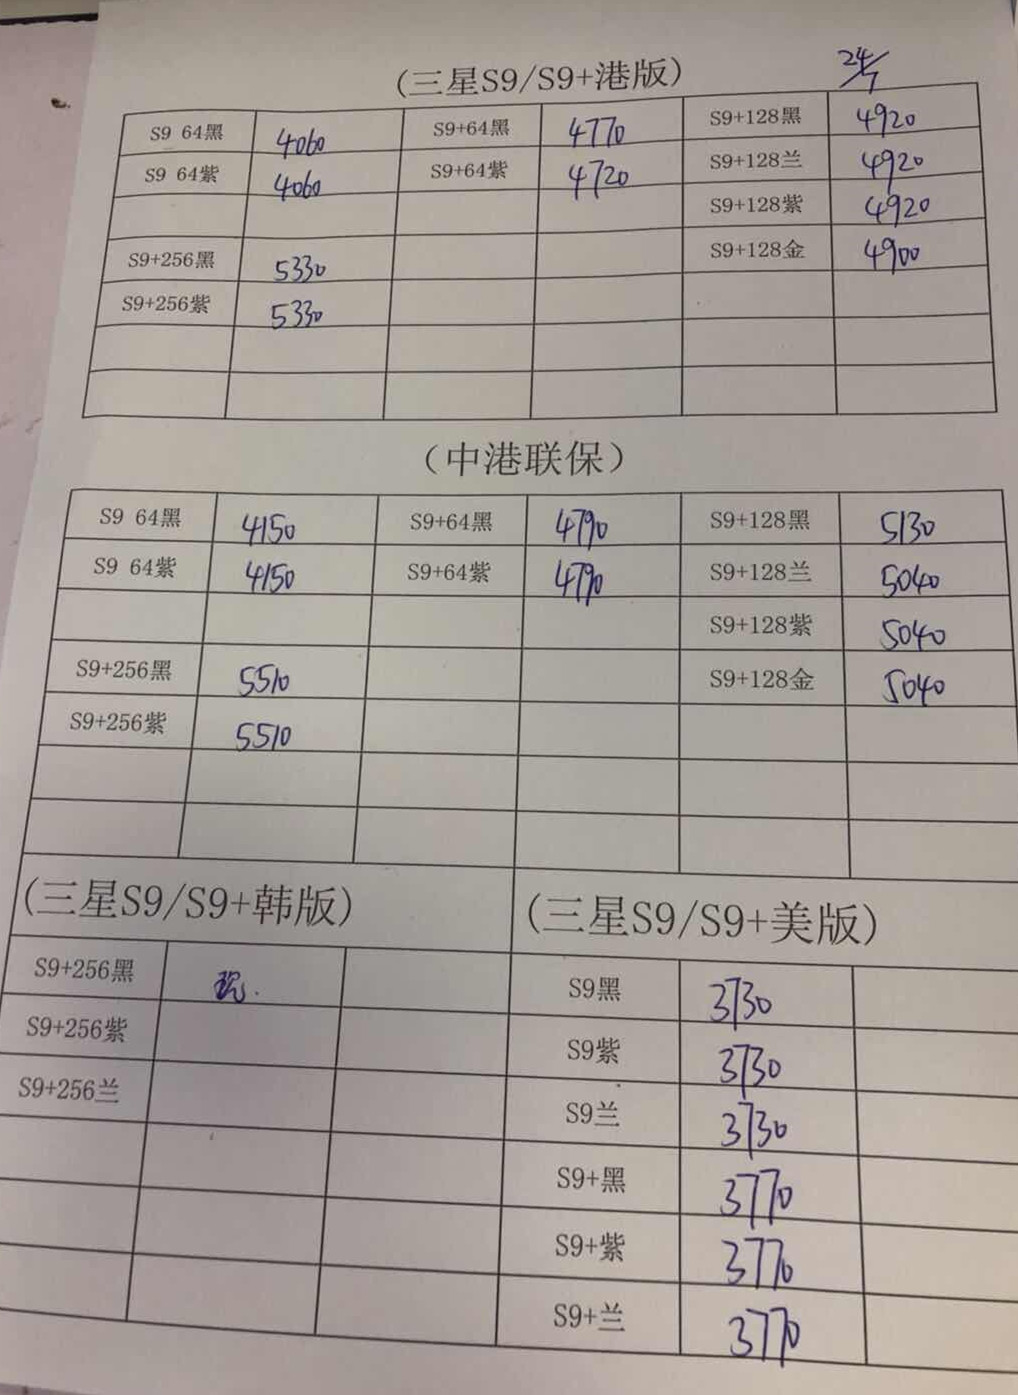 (三星S9/S9+港版) 24/7
S9 64黑 4060 S9+64黑 4770 S9+128黑 4920
S9 64紫 4060 S9+64紫 4720 S9+128兰 4920
S9+128紫 4920
S9+256黑 5330 S9+128金 4900
S9+256紫 5330
(中港联保)
S9 64黑 4150 S9+64黑 4790 S9+128黑 5130
S9 64紫 4150 S9+64紫 4790 S9+128兰 5040
S9+128紫 5040
S9+256黑 5510 S9+128金 5040
S9+256紫 5510
(三星S9/S9+韩版) (三星S9/S9+美版)
S9+256黑 S9黑 3730
S9+256紫 S9紫 3730
S9+256兰 S9兰 3730
S9+黑 3770
S9+紫 3770
S9+兰 3770